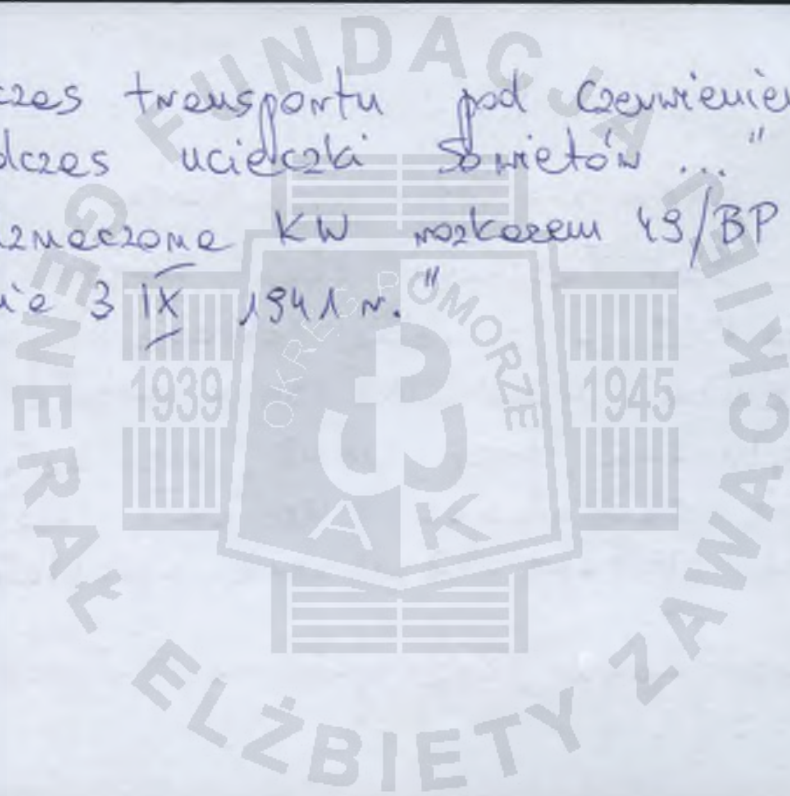 czas transportu pod Czerwieniem
dczas ucieczki Sowietów ..."
znaczona KW rozkazem 49/BP
ie 3 IX 1941 r."
FUNDACJA
GENERAŁ ELŻBIETY ZAWACKIEJ
OKRĘG POMORZE
1939
1945
AK